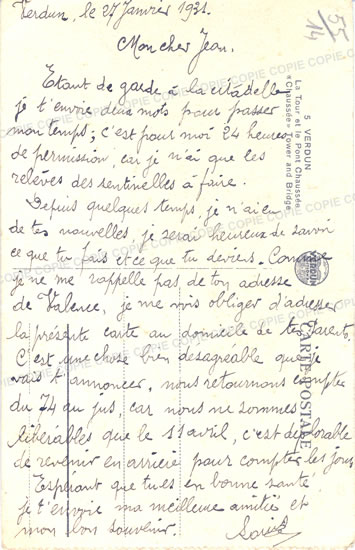 Verdun, le 27 Janvier 1931.
Mon cher Jean.
Etant de garde à la citadelle
je t'envoie deux mots pour passer
mon temps; c'est pour moi 24 heures
de permission, car je n'ai que les
relèves des sentinelles à faire.
Depuis quelques temps, je n'ai eu
de tes nouvelles, je serai heureux de savoir
ce que tu fais et ce que tu deviens. Comme
je ne me rappelle pas de ton adresse
de Valence, je me vois obliger d'adresser
la présente carte au domicile de tes Parents.
C'est une chose bien désagréable que je
vais t'annoncer, nous retournons compter
du 74 au jus, car nous ne sommes
libérables que le 11 avril, c'est déplorable
de revenir en arrière pour compter les jours
Espérant que tu es en bonne santé
je t'envoie ma meilleure amitiés et
mon bon souvenir.
55
14
5 VERDUN
La Tour et le Pont Chaussée
«Chaussée» Tower and Bridge
CARTE POSTALE
COPIE COPIE COPIE COPIE